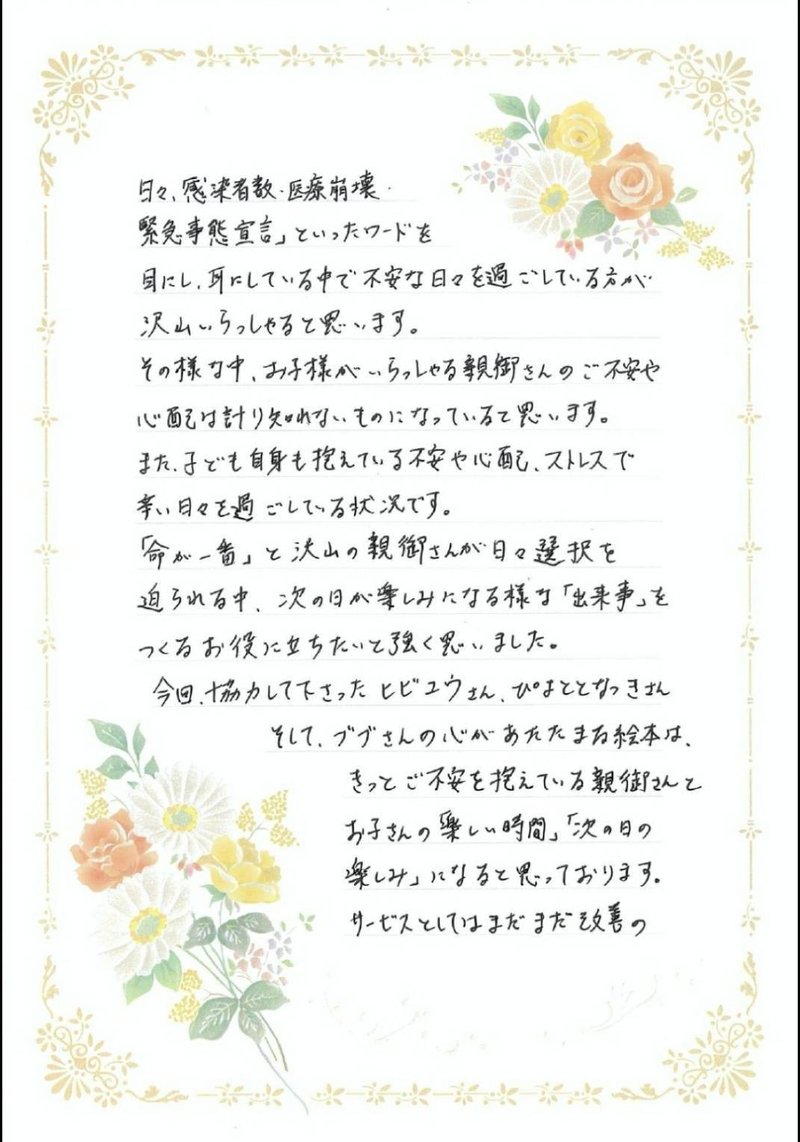 日々、感染者数・医療崩壊・
緊急事態宣言」といったワードを
目にし、耳にしている中で不安な日々を過ごしている方が
沢山いらっしゃると思います。
その様な中、お子様がいらっしゃる親御さんのご不安や
心配は計り知れないものになっていると思います。
また、子ども自身も抱えている不安や心配、ストレスで
辛い日々を過ごしている状況です。
「命が一番」と沢山の親御さんが日々選択を
迫られる中、次の日が楽しみになる様な「出来事」を
つくるお役に立ちたいと強く思いました。
今回、協力して下さったヒビユウさん、ぴまととなっきさん
そして、ブブさんの心があたたまる絵本は、
きっとご不安を抱えている親御さんと
お子さんの「楽しい時間」「次の日の
楽しみ」になると思っております。
サービスとしてはまだまだ改善の